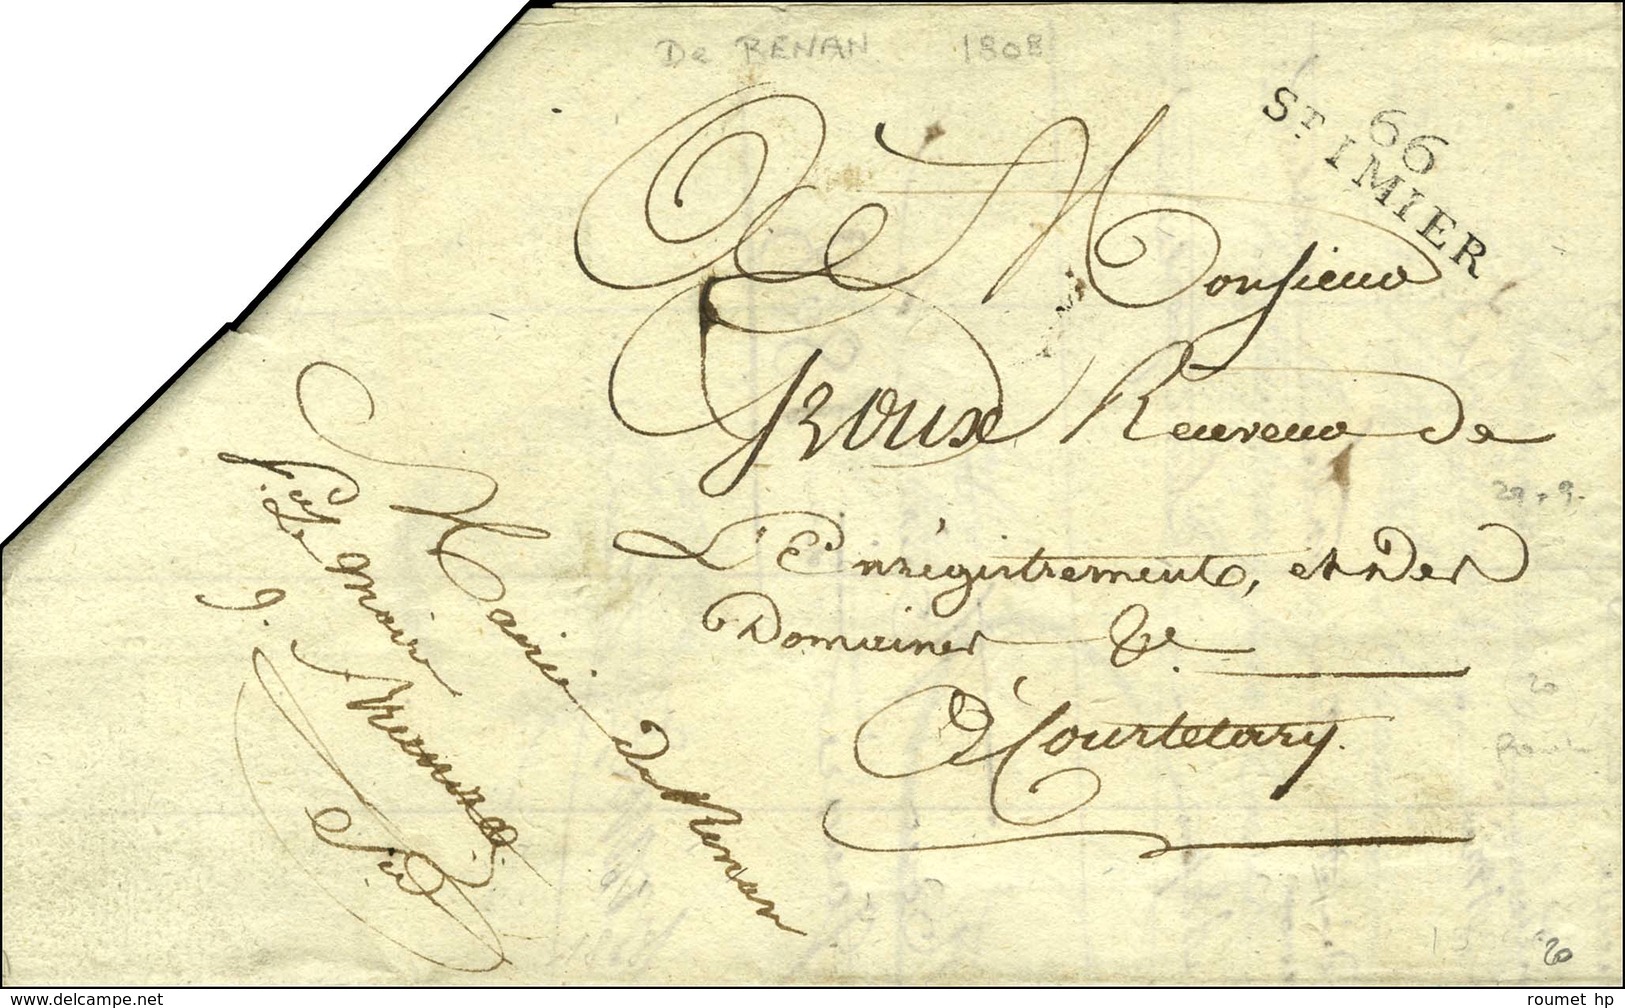 De RENAN 1808
66
ST IMIER
A Monsieur
Roux Receveur de
L'Enrégistrement, et des
Domaines &c.
à Courtelary.
Mairie de Renan
Le Maire
roumet hp